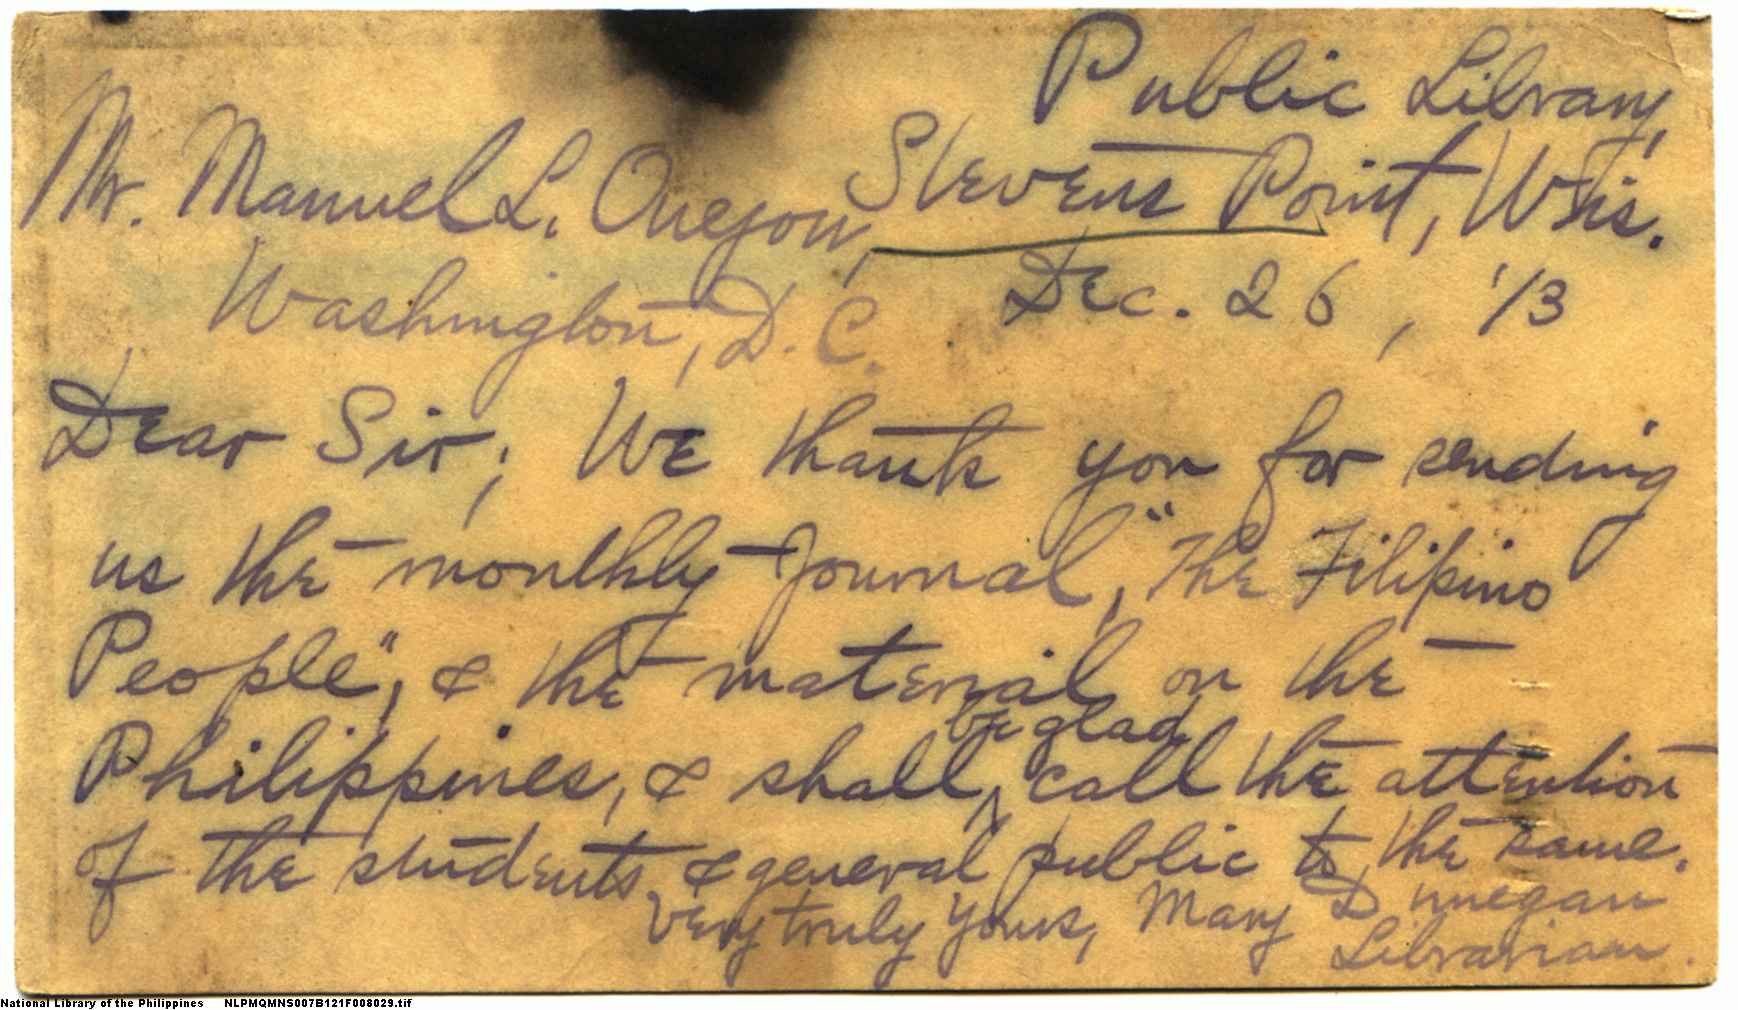 Public Library,
Stevens Point, Wis.
Dec. 26, '13
Mr. Manuel L. Quezon,
Washington, D. C.
Dear Sir; We thank you for sending
us the monthly journal, "The Filipino
People", & the material on the
be glad
Philippines, & shall ^ call the attention
of the students & general public to the same.
Very truly yours, Mary Dunegan
Librarian.
National Library of the Philippines NLPMQMNS007B121F008029.tif